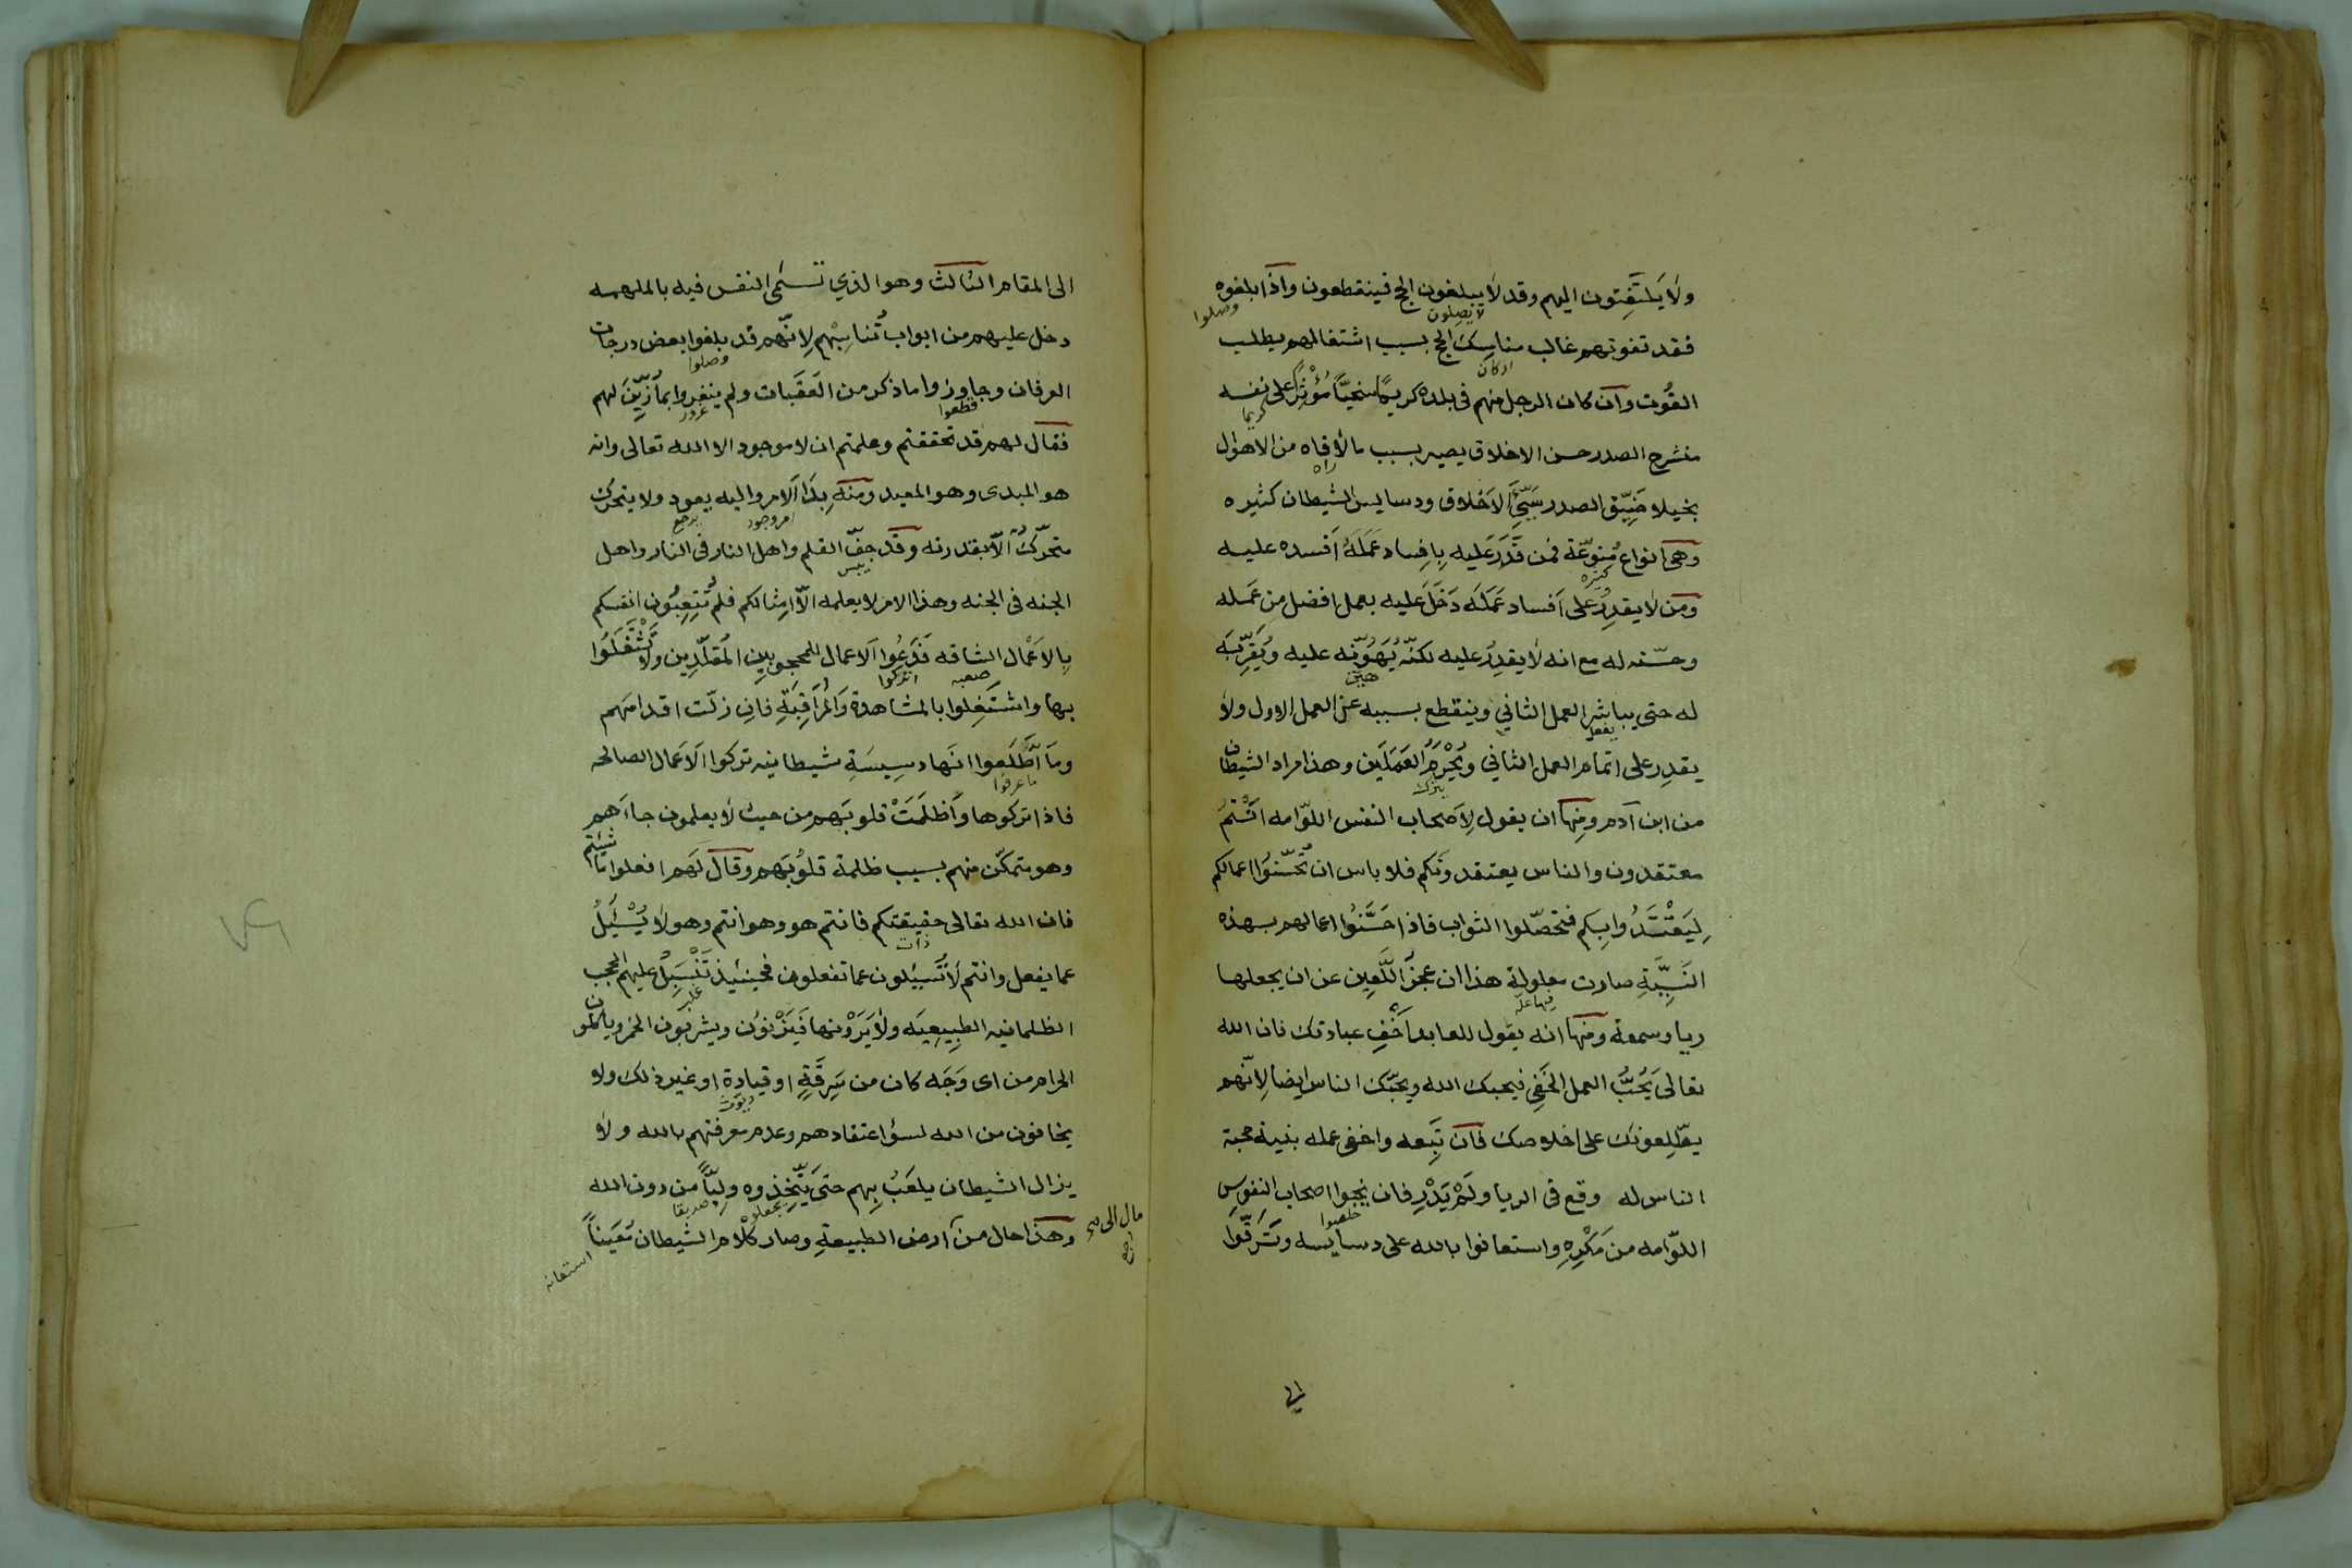 ولا يَلتَفِتون اليهم وقد لا يبلغون الحج فينقطعون واذا بلغوه
لا يصلون
وصلوا
فقد تفوتهم غالب مناسك الحج بسبب اشتغالهم بطلب
اركان
القُوت وان كان الرجل منهم في بلده كريمًا سخيّاً مُؤْثِراً على نفسه
كريما
منشرح الصدر حسن الاخلاق يصير بسبب ما لاقاه من الاهوال
راه
بخيلا ضَيِّق الصدر سَيِّئَ الاَخلاق ودسايس الشيطان كثيره
وهى انواع مُتنوّعة فمن قَدَرَ عَليه بِافِساد عَمَلَهُ اَفسده عليه
كثيره
ومن لا يقدِرُ على اَفساد عَمَلَه دَخَلَ عَليه بعمل افضل مِن عَمَله
وحسّنه له مع انه لا يقدِرُ عليه لكنّه يُهَوّنِه عليه ويُقَرِّبَه
هين
له حتى يباشر العمل الثاني وينقطع بسببه عن العمل الاول ولا
يفعل
يقدِر على اتمام العمل الثاني ويُحْرَمُ العَمَلَين وهذا مراد الشيطان
يترك
من ابن آدم ومِنها ان يقول لِاَصحاب النفس اللوّامه انْتم
معتقدون والناس يعتقدونَكم فلا باس ان تُحسّنوُا اعمالكم
لِيَقْتَدُوا بِكم فتحصّلوا الثواب فاذا حَسَّنوُا اعمالهم بهذه
النَيِّةِ صارت معلولة هذا ان عجز اللَّعِين عن ان يجعلها
فيها علة
ريا وسمعة ومنها انه يقول للعابد اَخْفِ عبادتك فان الله
تعالىَ يُحبُّ العمل الخَفِى فيحبك الله ويحبّك الناس ايضا لِانّهم
يطّلِعونك على اخلاصك فان تَبِعه واخفى عمله بنية محبة
الناس له وقع فى الريا ولَمْ يَدْرِ فان نجوا اصحاب النفوس
خلصوا
اللوّامه من مَكْرِهِ واستعانوا بالله على دسايسه وتَرَقّوا
الى
الى المقام الثالث وهو الذي تسَمَّى النفس فيه بالملهمه
دخل عليهم من ابواب تُناسِبْهم لِانّهم قد بلغوا بعض درجات
وصلوا
العرفان وجاوزوا ما ذكر من العَقَبات ولم يغتروا بما زُيِّنَ لهم
قطعوا
غرور
فقال لهم قد تحققتم وعلمتم ان لا موجود الا الله تعالى وانه
هو المبدى وهو المعيد ومنه بِدَا الامر واليه يعود ولا يتحرك
امر وجود
يرجع
متحرّكٌ الاّ بقدرته وقد جفّ القلم واهل النار فى النار واهل
يبس
الجنه فى الجنه وهذا الامر لا يعلمه الاّ امثالكم فلم تُتعِبُون انفسكم
بِالاَعْمال الشاقه فَدَعُوا الاعمال للمحجوبين المُقلّدِين ولا تَشْتَغَلُوا
صعبه
اتركوا
بها واشتَغِلوا بالمشاهدة وَالمُرَاقِبَةِ فانِ زلّت اقدامهم
وما اطَّلَعوا انها دسِيسَةِ شيطانيه تركوا الاَعمال الصالحه
ما عرفوا
فاذا تركوها وَاَظلَمَتْ قلوبَهم من حيث لا يعلمون جاآهم
وهو متمكّن منهم بسبب ظلمة قلُوبَهم وقال لَهم افعلوا ما شئتم
فان الله تعالى حقيقتكم فانتم هو وهو انتم وهو لا يُسْئَلُ
ذات
عما يفعل وانتم لا تُسئلون عما تفعلون فحينئيذ تَنْسَبِلُ عليهم الحجب
الظلمانيه الطِبيعِيَه ولا يَرَوْنها فَيَزْنوُن ويشربون الخمر وياكلون
الحرام من اى وَجَه كان من سَرِقَةٍ او قيادة او غير ذلك ولا
ديوث
يخافون من الله لسؤ اعتقادهم وعدم معرفتهم بالله ولا
يزال الشيطان يلعَبُ بِهم حتىَ يتّخِذوه وليّاً من دون الله
يجعلوه
صديقا
وهذا حال من آرض الطبيعةِ وصار كلاَم الشيطان تعَيناً
مال الى
رجع
استعانه